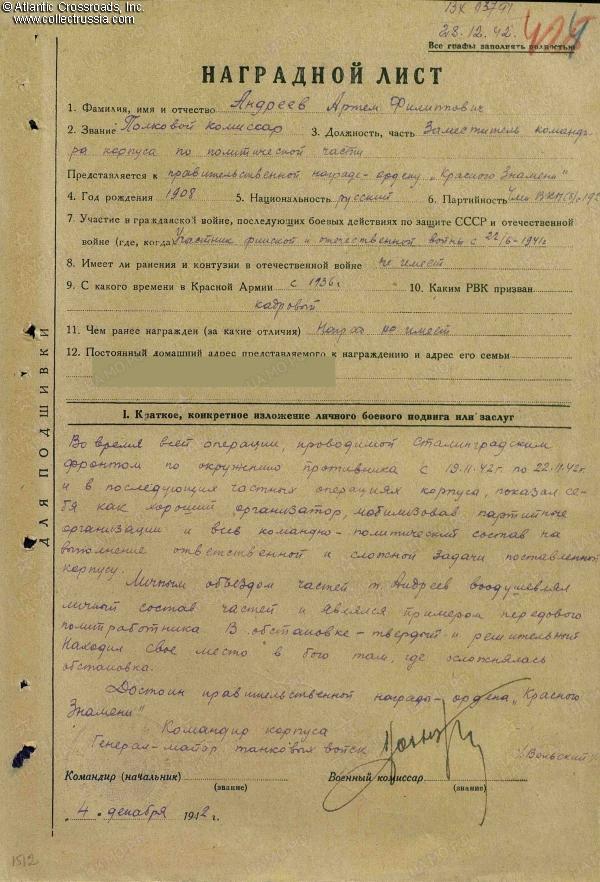 © Atlantic Crossroads, Inc.
www.collectrussia.com
28.12.42.
Все графы заполнять полностью
НАГРАДНОЙ ЛИСТ
1. Фамилия, имя и отчество Андреев Артем Филиппович
2. Звание Полковой комиссар 3. Должность, часть Заместитель команди-
ра корпуса по политической части
Представляется к правительственной награде- ордену „Красного Знамени"
4. Год рождения 1908 5. Национальность русский 6. Партийность Член ВКП(б)
7. Участие в гражданской войне, последующих боевых действиях по защите СССР и отечественной
войне (где, когда) Участник финской и отечественной войны с 22/6-1941г
8. Имеет ли ранения и контузии в отечественной войне не имеет
9. С какого времени в Красной Армии с 1936г 10. Каким РВК призван
кадровый
11. Чем ранее награжден (за какие отличия) Наград не имеет
12. Постоянный домашний адрес представляемого к награждению и адрес его семьи
ДЛЯ ПОДШИВКИ
I. Краткое, конкретное изложение личного боевого подвига или заслуг
Во время всей операции, проводимой Сталинградским
фронтом по окружению противника с 19.11.42г. по 22.11.42г.
и в последующих частных операциях корпуса, показал се-
бя как хороший организатор, мобилизовав партийные
организации и весь командно-политический состав на
выполнение ответственной и сложной задачи поставленной
корпусу.
Личным объездом частей т. Андреев воодушевлял
личный состав частей и являлся примером передового
политработника. В обстановке – твердый и решительный
Находил свое место в бою там, где осложнялась
обстановка.
Достоин правительственной награды- ордена „Красного
Знамени"
Командир корпуса
Генерал-майор танковых войск /Вольский/
Командир (начальник) Военный комиссар
(звание) (звание)
„4" декабря 1942 г.
1512